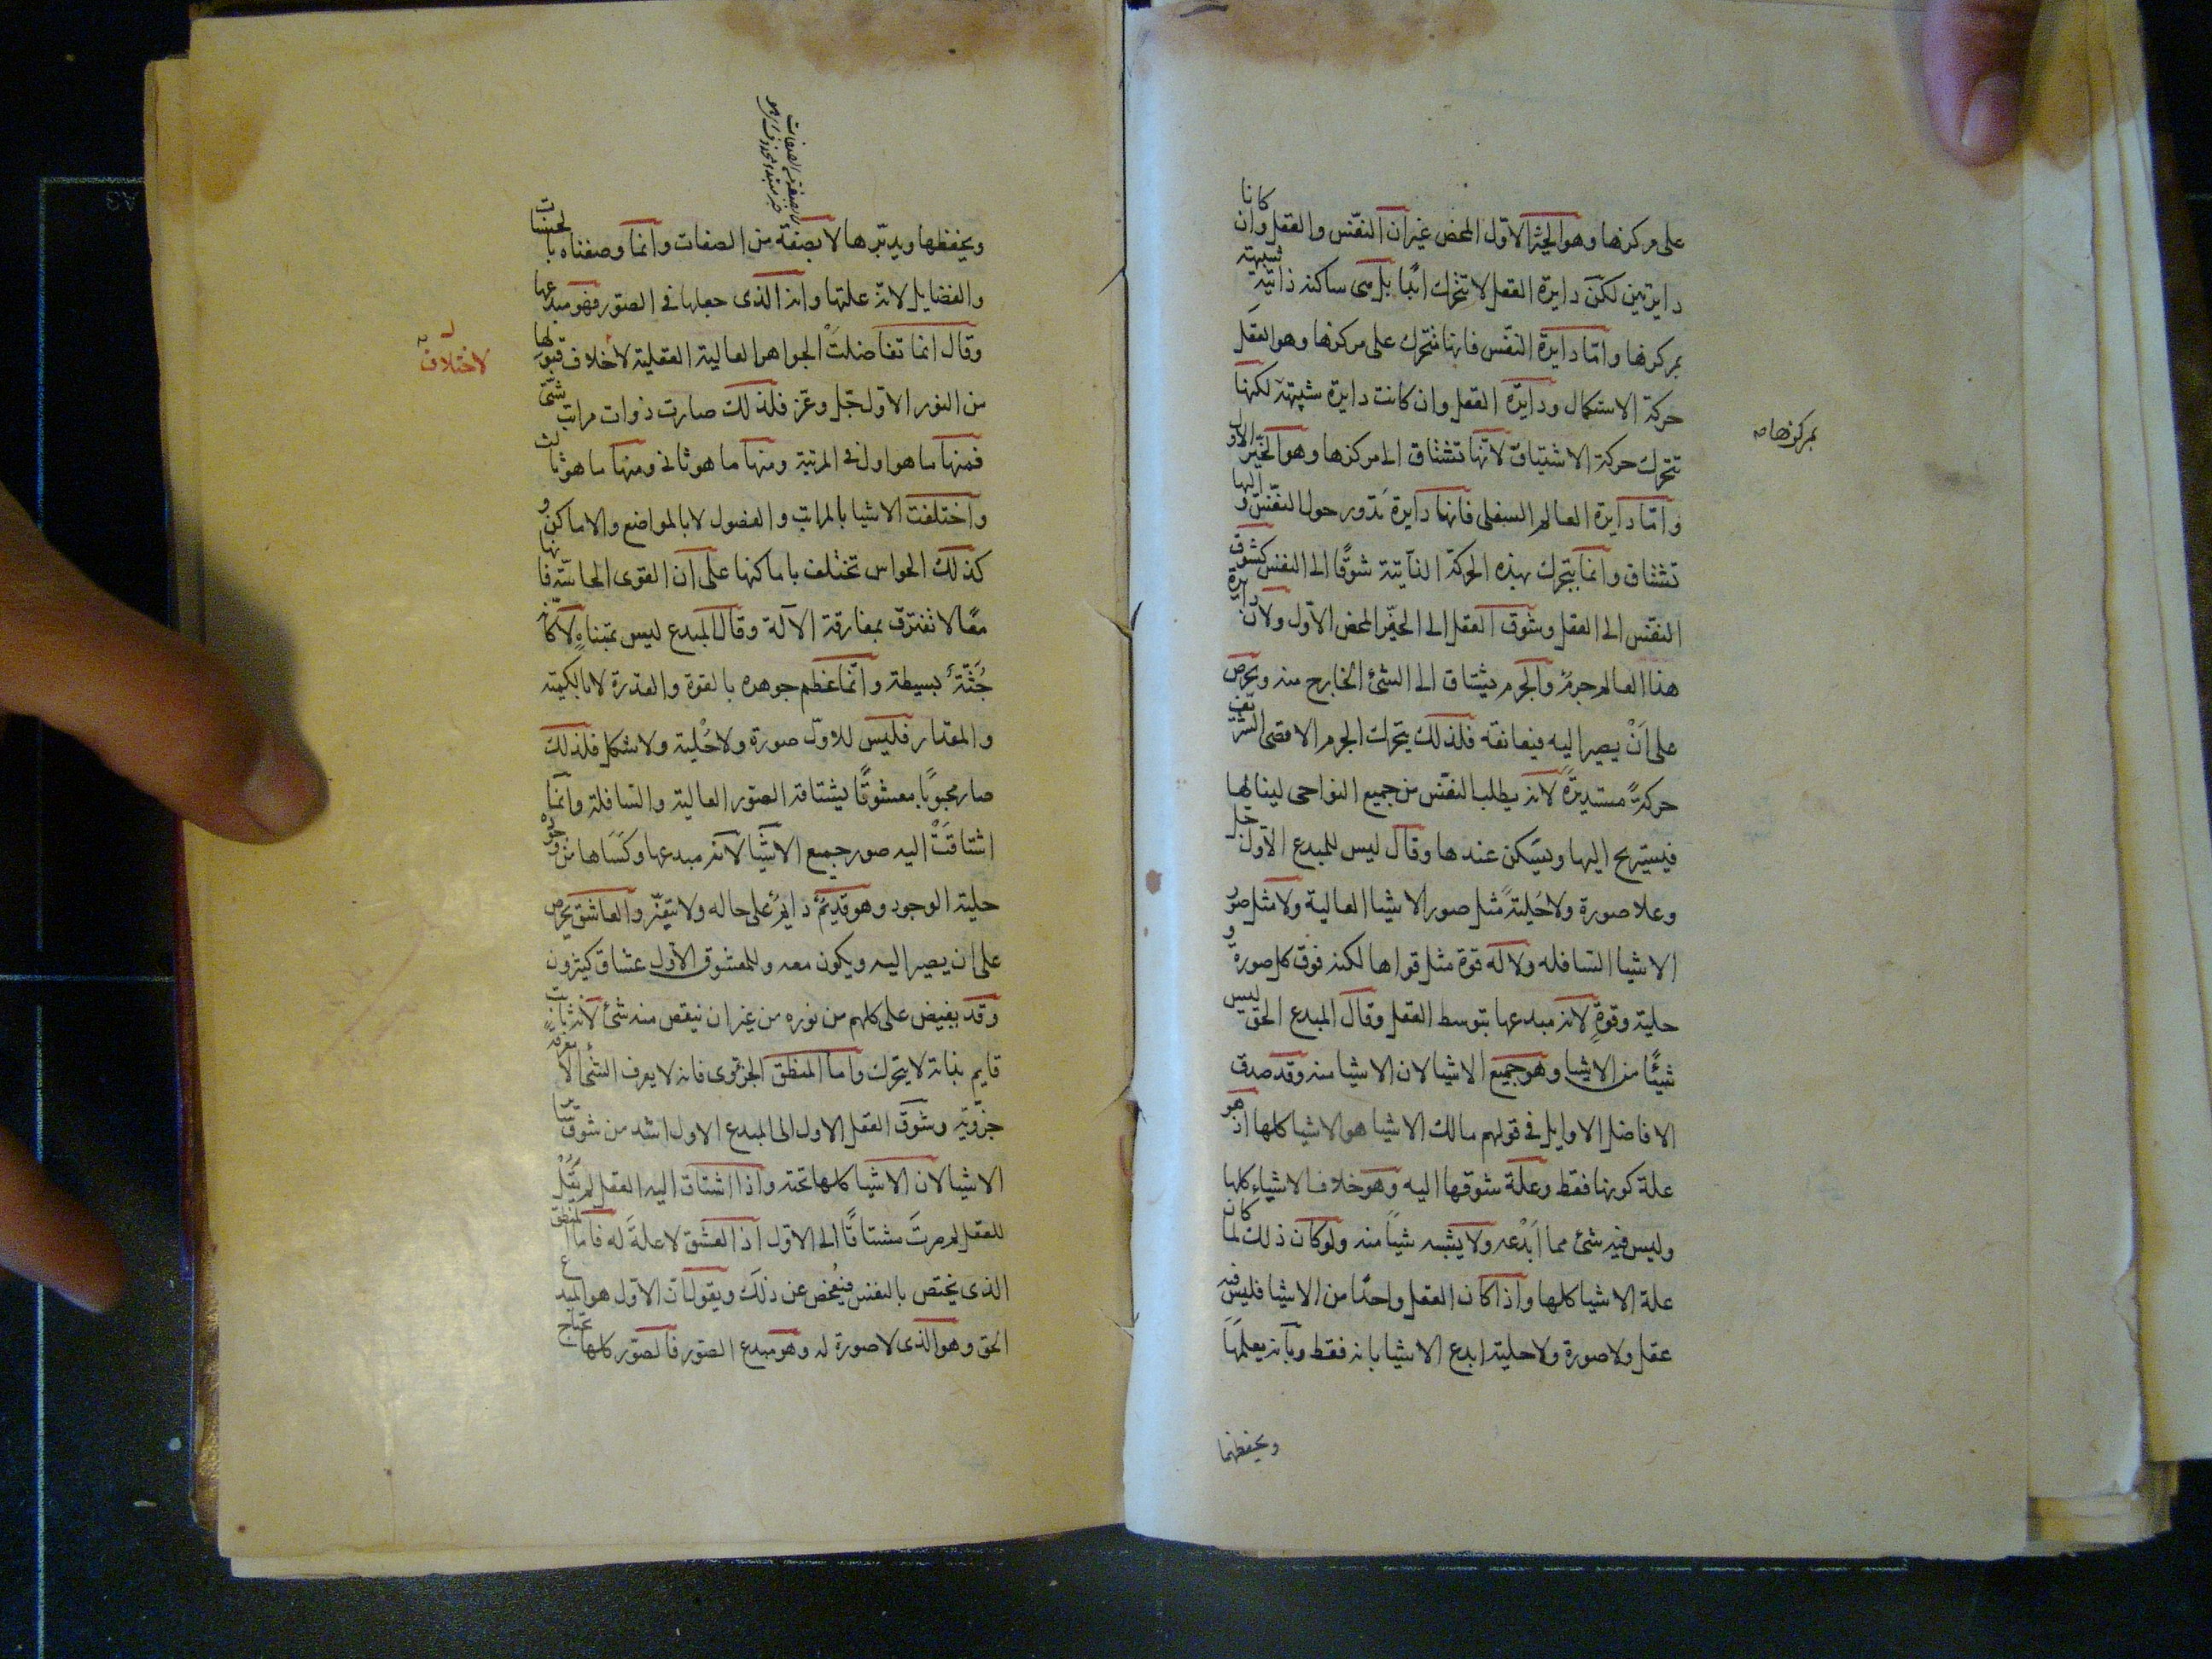 على مركزها وهو الخير الاول المحض غير ان النفس والعقل وان كانا
دايرتين لكن دايرة العقل لا تتحرك ابدا بل هى ساكنة ذاتية شبيهة
بمركزها واما دايرة النفس فانها تتحرك على مركزها وهو العقل
حركة الاستكمال ودايرة العقل وان كانت دايرة شبيهة لكنها
بمركزها صه
تتحرك حركة الاشتياق لانها تشتاق الى مركزها وهو الخير الاول
واما دايرة العالم السفلى فانها دايرة تدور حول النفس و اليها
تشتاق وانما يتحرك بهذه الحركة الذاتية شوقا الى النفس كشوق
النفس الى العقل وشوق العقل الى الخير المحض الاول ولان دايرة
هذا العالم جرم والجرم يشتاق الى الشئ الخارج منه ويحرص
على ان يصير اليه فيعانقه فلذلك يتحرك الجرم الاقصى الشريف
حركة مستديرة لانه يطلب النفس من جميع النواحى لينالها
فيستريح اليها ويسكن عندها وقال ليس للمبدع الاول جل
وعلا صورة ولا حلية مثل صور الاشيا العالية ولا مثل صور
الاشيا السافله ولا له قوة مثل قواها لكنه فوق كل صورة و
حلية وقوة لانه مبدعها بتوسط العقل وقال المبدع الحق ليس
شيئا من الاشيا وهو جميع الاشيا لان الاشيا منه وقد صدق
الافاضل الاوايل فى قولهم مالك الاشيا هو الاشيا كلها اذ هو
علة كونها فقط وعلة شوقها اليه وهو خلاف الاشياء كلها
وليس فيه شئ مما ابدعه ولا يشبه شيا منه ولو كان ذلك لما كان
علة الاشيا كلها واذا كان العقل واحدا من الاشيا فليس فيه
عقل ولا صورة ولا حلية ابدع الاشيا بانه فقط وبانه يعلمها
ويحفظها
ويحفظها ويدبرها لا بصفة من الصفات وانما وصفناه بالحسنات
والفضايل لانه علتها وانه الذى جعلها فى الصور فهو مبدعها
وقال انما تفاضلت الجواهر العالية العقلية لاخلاف قبولها
لاختلاف
من النور الاول جل وعز فلذلك صارت ذوات مراتب شتى
فمنها ما هو اول فى المرتبة ومنها ما هو ثانى ومنها ما هو ثالث
واختلفت الاشيا بالمراتب والفصول لا بالمواضع والاماكن و
كذلك الحواس تختلف باماكنها على ان القوى الحاسة فانها
معا لا تفترق بمفارقة الآلة وقال المبدع ليس بمتناه لا كانه
جثة بسيطة وانما عظم جوهره بالقوة والقدرة لا بالكمية
والمقدار فليس للاول صورة ولا حلية ولا شكل فلذلك
صار محبوبا معشوقا يشتاقه الصور العالية والسافلة وانما
اشتاقت اليه صور جميع الاشيا لانه مبدعها وكساها من جوده
حلية الوجود وهو قديم دايم على حاله ولا يتغير والعاشق يحرص
على ان يصير اليه ويكون معه وللمعشوق الاول عشاق كثيرون
وقد يفيض على كلهم من نوره من غير ان ينقص منه شئ لانه ثابت
قايم بذاته لا يتحرك واما المنطق الجزئوى فانه لا يعرف الشئ الا معرفة
جزوية وشوق العقل الاول الى المبدع الاول اشد من شوق ساير
الاشيا لان الاشيا كلها تحته واذا اشتاق اليه العقل لم يقل
للعقل لم صرت مشتاقا الى الاول اذ العشق لا علة له فاما المنطق
الذى يختص بالنفس فيفحص عن ذلك ويقول ان الاول هو المبدع
الحق وهو الذى لا صورة له وهو مبدع الصور فالصور كلها تحتاج